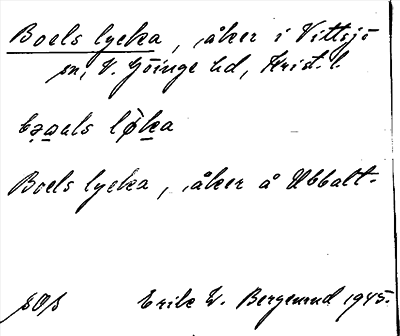 Boels lycka, åker i Vittsjö
sn, V. Göinge hd, Krist. l.
bǫals løka
Boels lycka, åker å Ubbalt.
sOs Erik W. Bergemund 1945.